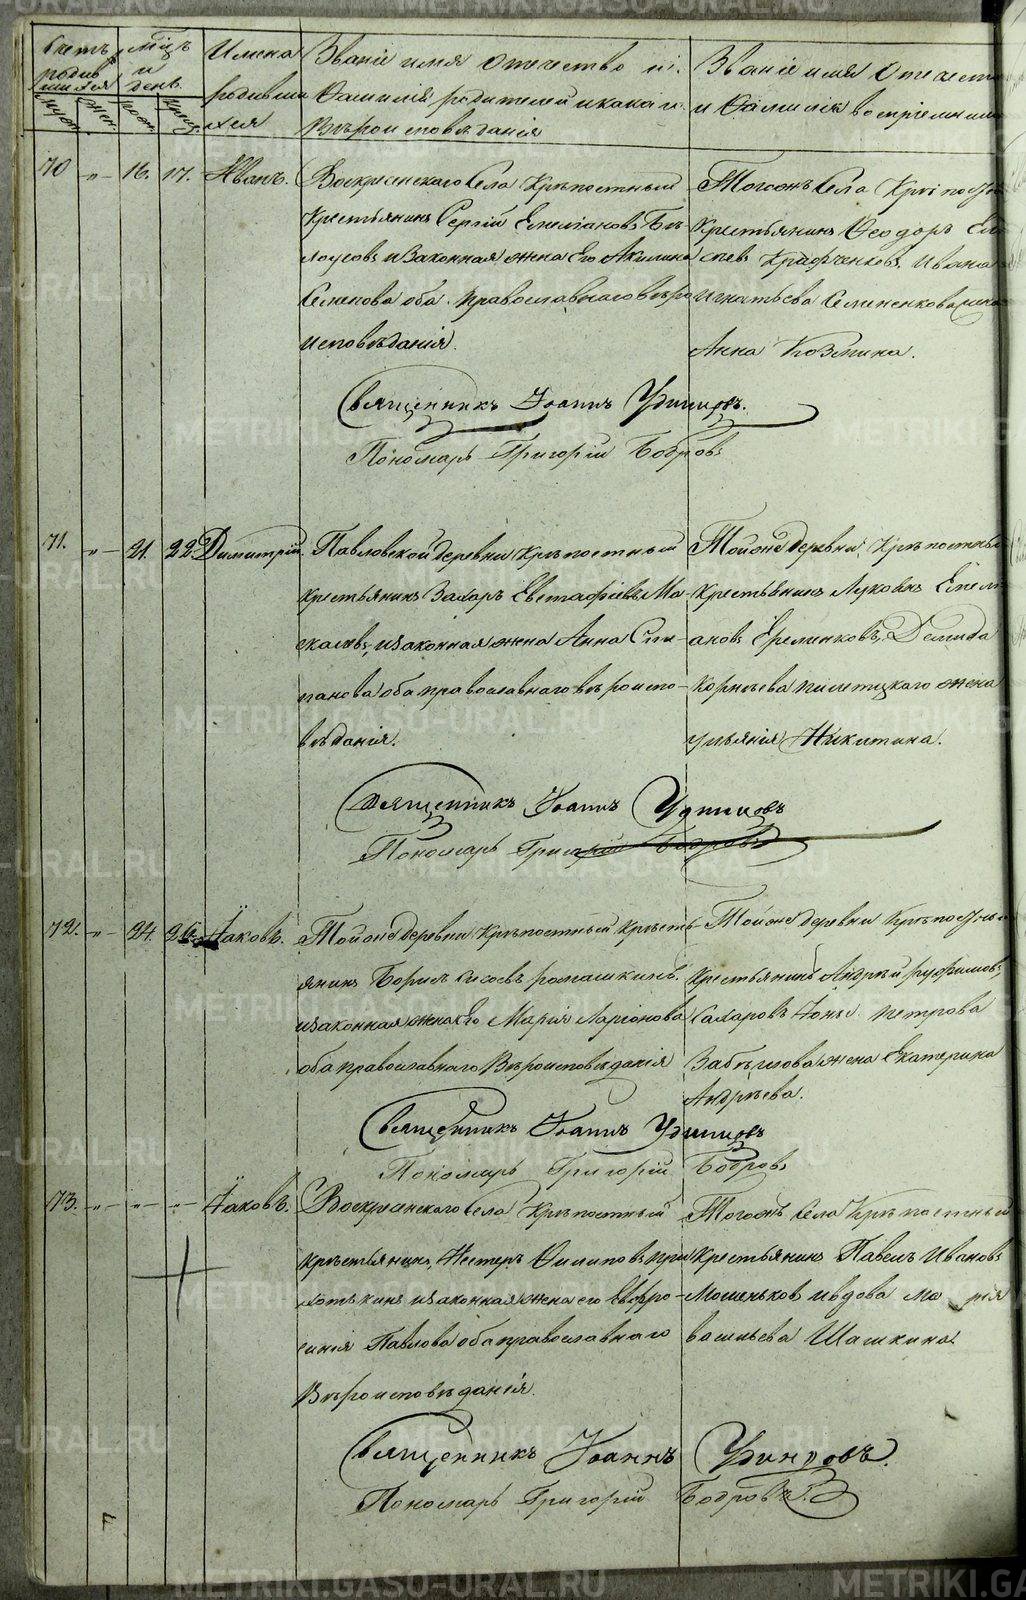 Счетъ родив шихся
муж.
жен.
мѣцъ и день.
рож.
крещ.
Имена родивши хся
Званіе имя Отечество и. Фамилія родителей и какаг. Вѣроисповѣданія
Званіе имя Отечест и Фамилія воспріемник
70 -"- 16. 17. Иванъ.
Воскресенскаго Села Крѣпостный
крестьянинъ Сергій Емеліановъ Бѣ-
лоусовъ и Законная жена Его Акилина
Семенова оба православнаго вѣро
исповѣданія.
Тогожъ Села Крѣпост
Крестьянинъ Ѳеодоръ
Ивана
Игнатьева
Анна Козмина.
Священникъ Іоаннъ Удинцовъ.
Пономарь Григорій Бобровъ
71. -"- 21. 22. Димитрій.
Павловской деревни Крѣпостный
крестьянинъ Захаръ Евстафіевъ Мо-
скалевъ, и законная жена Анна Сти-
панова оба православнаго вѣроиспо-
вѣданія.
Тойже деревни Крѣпостный
Крестьянинъ Емел
ановъ Еременковъ, Демида
Корнѣева жена
Ульянія Никитина.
Священникъ Іоаннъ Удинцовъ
Пономарь Григорій Бобровъ
72. -"- 24. 25. Іаковъ.
Тойже деревни Крѣпостный Крѣсть
янинъ Борисъ Сисоевъ ромашкинъ.
и законная жена Его Марія Ларіонова
оба православнаго Вѣроисповѣданія
Тойже деревни Крѣпостны
Крестьянинъ Андрѣй руфимовъ,
Сахаровъ Іоны петрова
Забѣлова жена Екатерина
Андрѣева.
Священникъ Іоаннъ Удинцовъ
Пономарь Григорій Бобровъ
73. -"- -"- -"- Іаковъ.
Воскресенскаго Села Крѣпостный
крѣстьянинъ, Нестеръ Филиповъ при
хотькинъ и законная жена его Евфро-
синія Павлова оба православнаго
Вѣроисповѣданія.
Тогожъ села Крѣпостный
Крестьянинъ Павелъ Ивановъ
Мошеньков ивдова марія
васильева Шашкина.
Священникъ Іоаннъ Удинцовъ.
Пономарь Григорій Бобровъ
METRIKI.GASO-URAL.RU